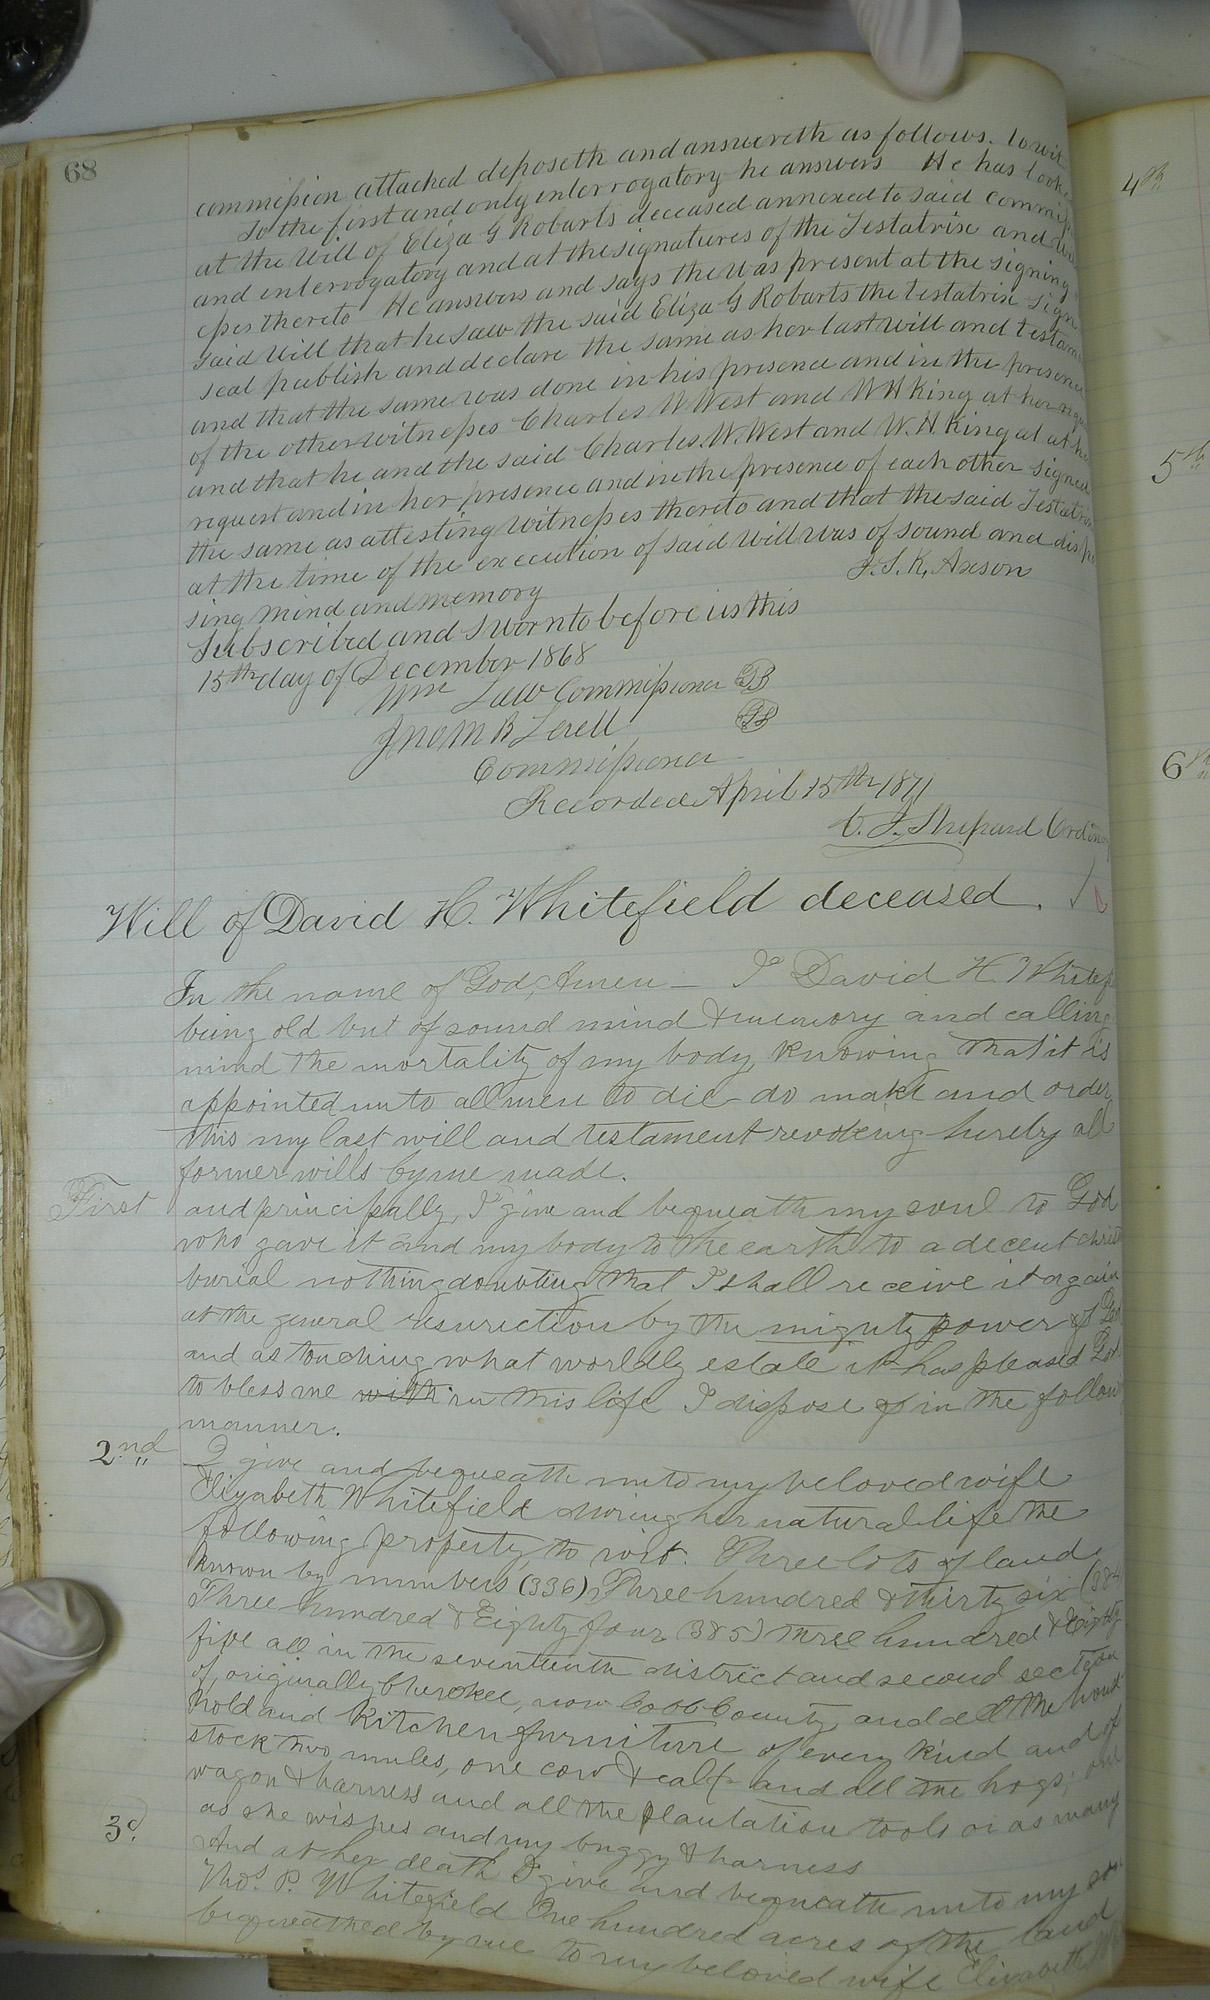 68
commission attached deposeth and answereth as follows. to wit
To the first and only interrogatory he answers He has looke
at the Will of Eliza G Robarts deceased annexed to said commiss
and interrogatory and at the signatures of the Testatrix and Witn
esses thereto He answers and says the was present at the signing
said Will that he saw the said Eliza G Robarts the testatrix sign
seal publish and declare the same as her last will and testam
and that the same was done in his presence and in the presence
of the other witnesses Charles W West and W H King at her requ
and that he and the said Charles. W. West and W. H. King at at he
request and in her presence and in the presence of each other signed
the same as attesting witnesses thereto and that the said Testatrix
at the time of the execution of said Will was of sound and dispo
sing mind and memory
I. S. K. Axson
Subscribed and Sworn to before us this
15th day of December 1868
Wm Law Commissioner
Jno M B
Commissioner
Recorded April 15th 1871
Shepard Ordinary
Will of David H. Whitefield deceased.
In the name of God, Amen — I David H. Whitef
being old but of sound mind & memory and calling
mind the mortality of my body, knowing that it is
appointed unto all men to die do make and order
this my last will and testament revokeing hereby all
former wills by me made.
First and principally, I give and bequeath my soul to God
who gave it and my body to the earth to a decent christ
burial nothing doubting that I shall receive it again
at the general resurection by the mighty power of God
and as touching what worldly estate it has pleased God
to bless me with in this life I dispose of in the follow
manner.
2nd I give and bequeath unto my beloved wife
Elizabeth Whitefield during her natural life the
following property, to wit: Three lots of land
known by numbers (336) Three hundred & thirty six (384)
Three hundred & Eighty four (385) three hundred & Eighty
five all in the seventeenth district and second section
of, originally Cherokee, now Cobb County, and all the hous
hold and Kitchen furniture of every kind and of
stock two mules, one cow & calf and all the hogs; one
wagon & harness and all the plantation tools or as many
as she wishes and my buggy & harness
3d. And at her death I give and bequeath unto my son
Thos. P. Whitefield One hundred acres of the land
bequeathed by me to my beloved wife Elizabeth
4th
5th
6th